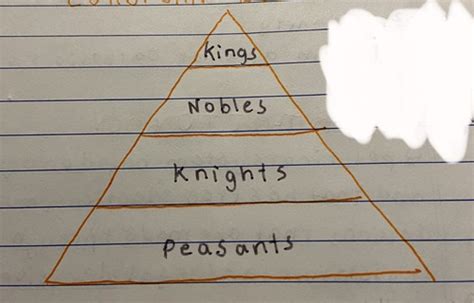 Kings
Nobles
Knights
Peasants